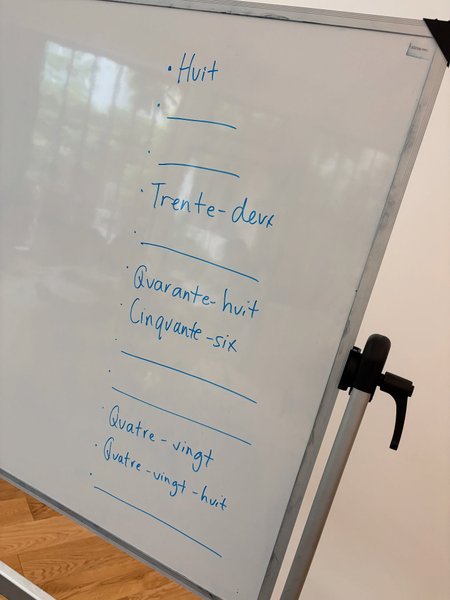 • Huit
• ______
• ______
• Trente-deux
• ______
• Quarante-huit
• Cinquante-six
• ______
• ______
• Quatre-vingt
• Quatre-vingt-huit
• ______